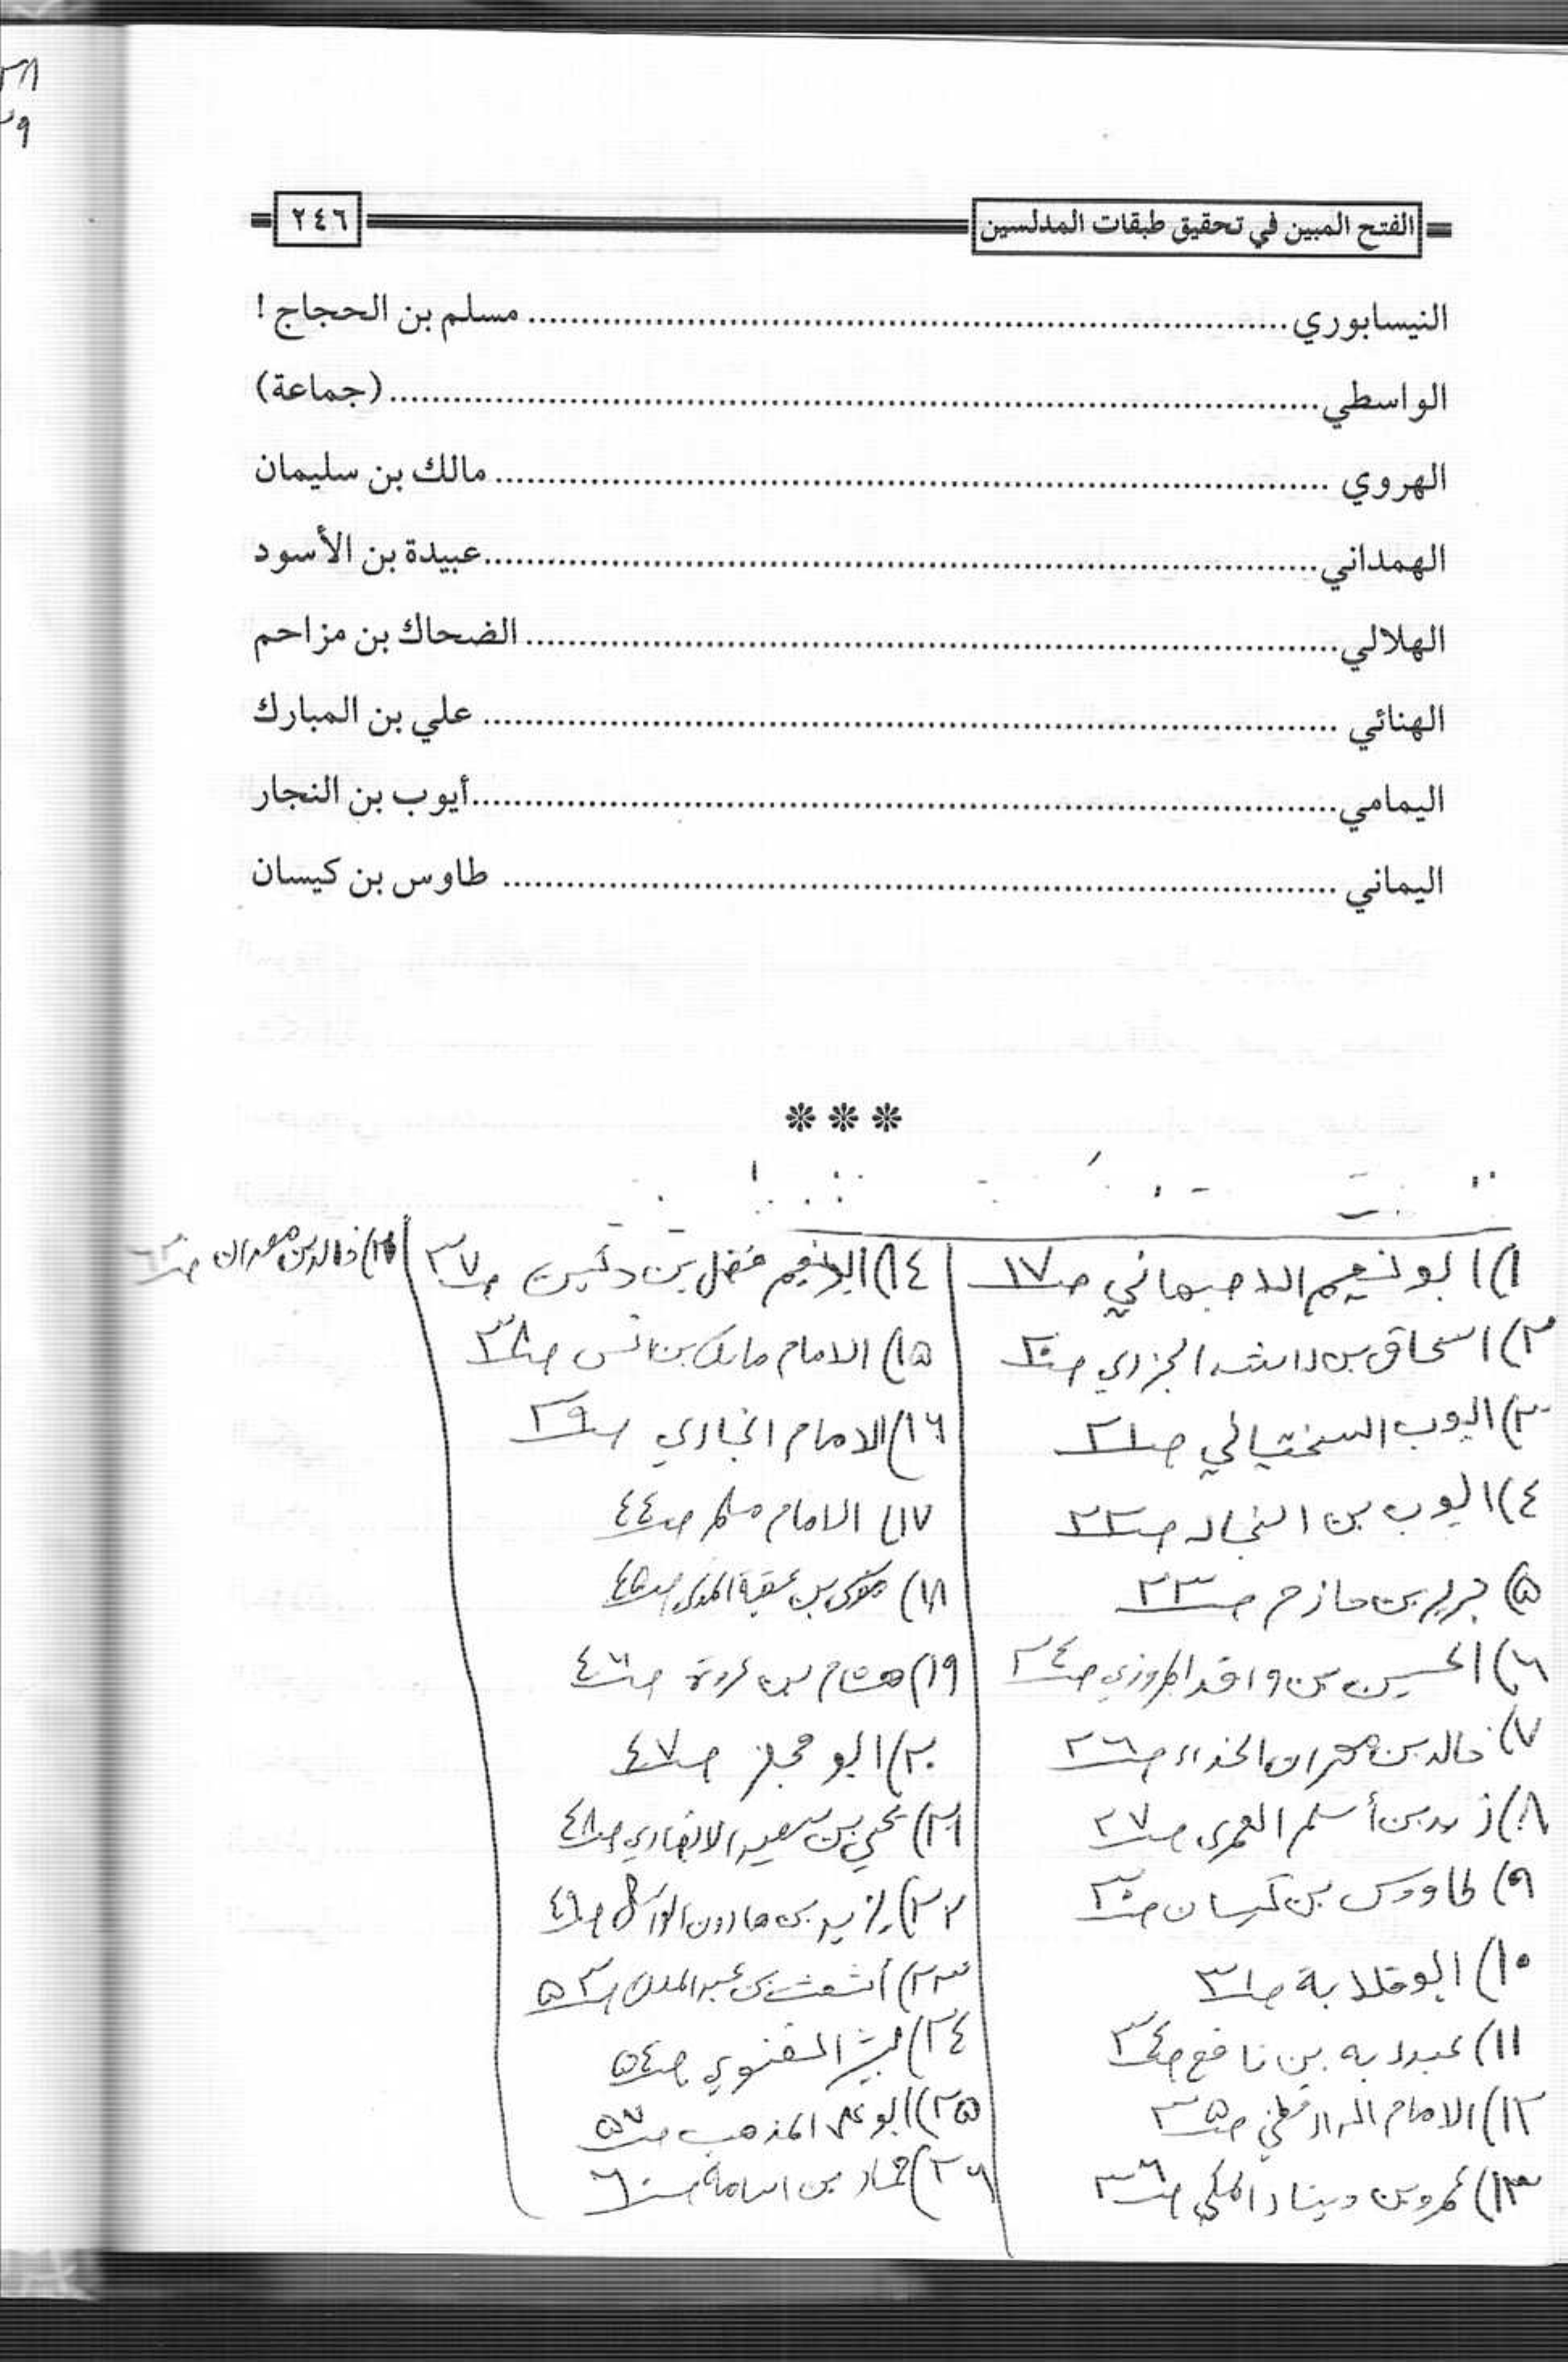 الفتح المبين في تحقيق طبقات المدلسين ٢٤٦
النيسابوري ........ مسلم بن الحجاج !
الواسطي ........ (جماعة)
الهروي ........ مالك بن سليمان
الهمداني ........ عبيدة بن الأسود
الهلالي ........ الضحاك بن مزاحم
الهنائي ........ علي بن المبارك
اليمامي ........ أيوب بن النجار
اليماني ........ طاوس بن كيسان
***
١) ابو نعيم الاصبهاني صـ ١٧
٢) اسحاق بن راشد الجزري صـ ٢٠
٣) ايوب السختياني صـ ٢١
٤) ايوب بن النجار صـ ٢٢
٥) جرير بن حازم صـ ٢٣
٦) الحسين بن واقد المروزي صـ ٢٤
٧) خالد بن مهران الحذاء صـ ٢٦
٨) زيد بن أسلم العمري صـ ٢٧
٩) طاووس بن كيسان صـ ٣٠
١٠) ابو قلابة صـ ٣١
١١) عبدربه بن نافع صـ ٣٤
١٢) الامام الدارقطني صـ ٣٥
١٣) عمرو بن دينار المكي صـ ٣٦
١٤) ابو نعيم فضل بن دكين صـ ٣٧
١٥) الامام مالك بن انس صـ ٣٨
١٦) الامام البخاري صـ ٣٩
١٧) الامام مسلم صـ ٤٤
١٨) موسى بن عقبة المدني صـ ٤٥
١٩) هشام بن عروة صـ ٤٦
٢٠) ابو مجلز صـ ٤٧
٢١) يحي بن سعيد الانصاري صـ ٤٨
٢٢) يزيد بن هارون صـ ٤٩
٢٣) أشعث بن عبد الملك صـ ٥٣
٢٤) صـ ٥٤
٢٥) ابو علي المذهب صـ ٥٧
٢٦) حماد بن اسامة صـ ٦٠
خالد بن معدان